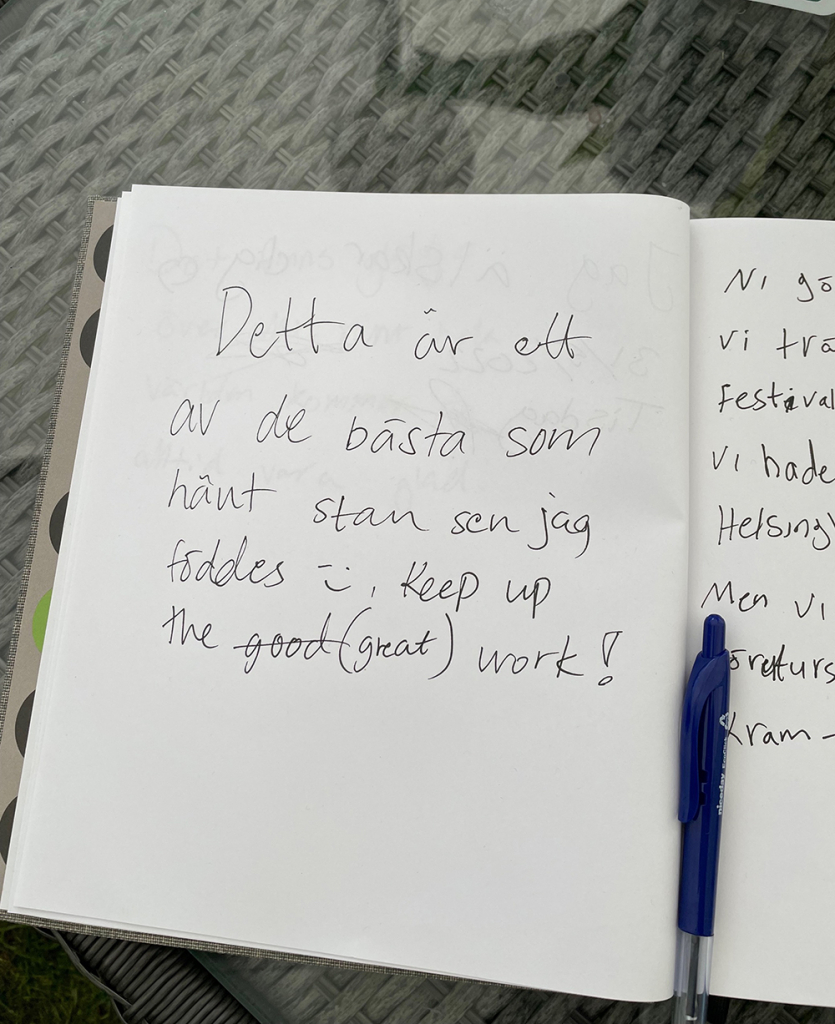 Detta är ett
av de bästa som
hänt stan sen jag
föddes :), Keep up
the good (great) work!
Ni gö
vi trä
Festival
Vi hade
Helsing
Men vi
Kram -